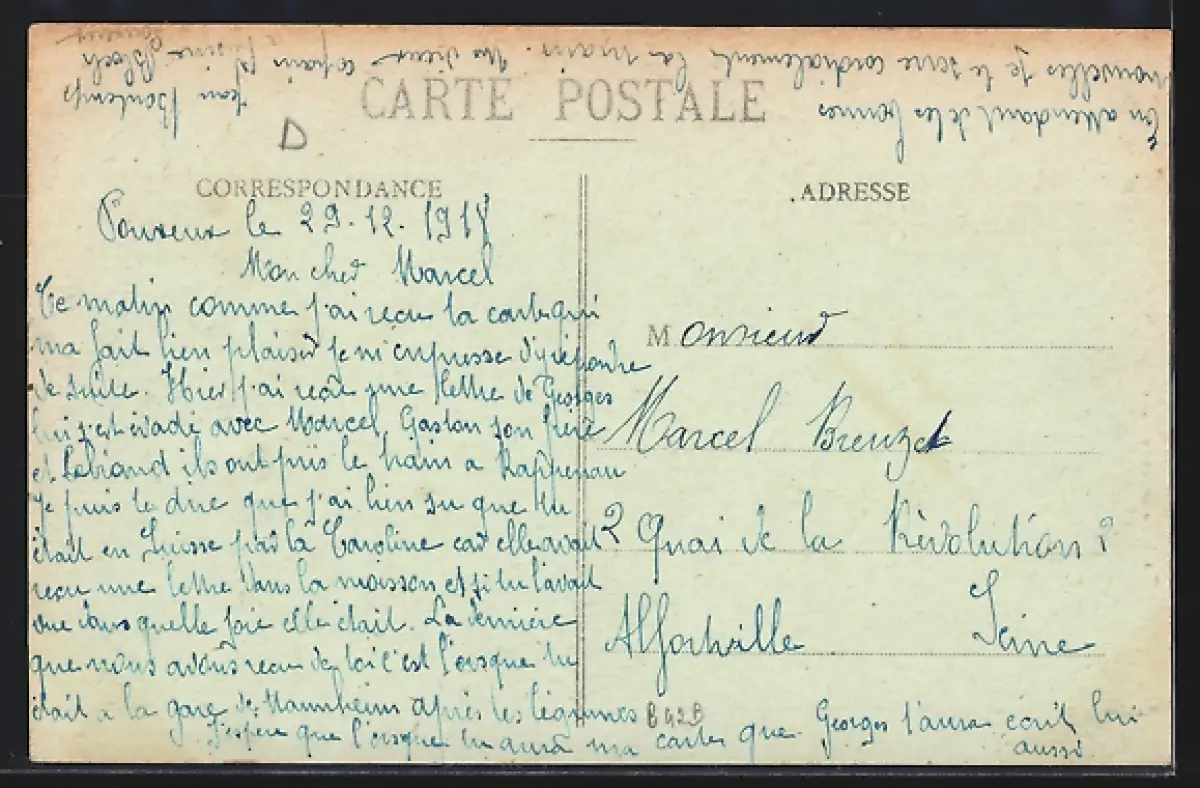 CARTE POSTALE
D
CORRESPONDANCE
le 29.12.1918
Mon cher Marcel
Ce matin comme j'ai reçu ta carte qui
ma fait bien plaisir je m'empresse d'y répondre
de suite. Hier j'ai reçu une lettre de Georges
lui s'est évadé avec Marcel, Gaston son frère
et ils ont pris le train a Rappenau
Je puis te dire que j'ai bien su que tu
était en Suisse par la Caroline car elle avait
reçu une lettre dans la moisson et si tu l'avait
vue dans quelle joie elle était. La dernière
que nous avons reçu de toi c'est l'orsque tu
était a la gare de Mannheim après les légumes
J'espère que l'orsque tu aura ma carte que Georges t'aura écrit lui
aussi
En attendant de tes bonnes
nouvelles je te serre cordialement la main. Un vieux copain
Jean Bontemps
ADRESSE
Monsieur
Marcel Breuzet
2 Quai de la Révolution 2
Alfortville Seine
B42B